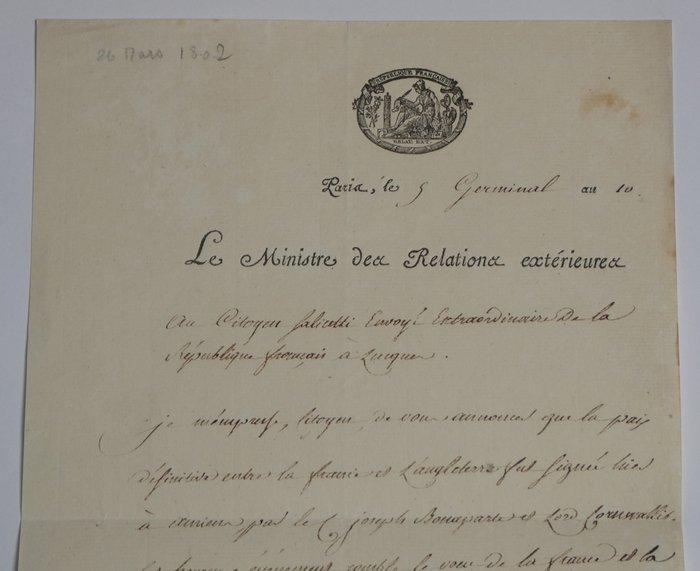 26 Mars 1802
RÉPUBLIQUE FRANÇAISE
RELAT. EXT.
Paris, le 5 Germinal an 10.
Le Ministre des Relations extérieures
Au Citoyen Salicetti Envoyé Extraordinaire De la
République français à Lucques.
je m'empresse, Citoyen, de vous annoncer que la paix
définitive entre la france et L'angleterre fut signée hier
à amiens par le C. joseph Bonaparte et Lord Cornwallis.
événement comble le voeu de la france et la